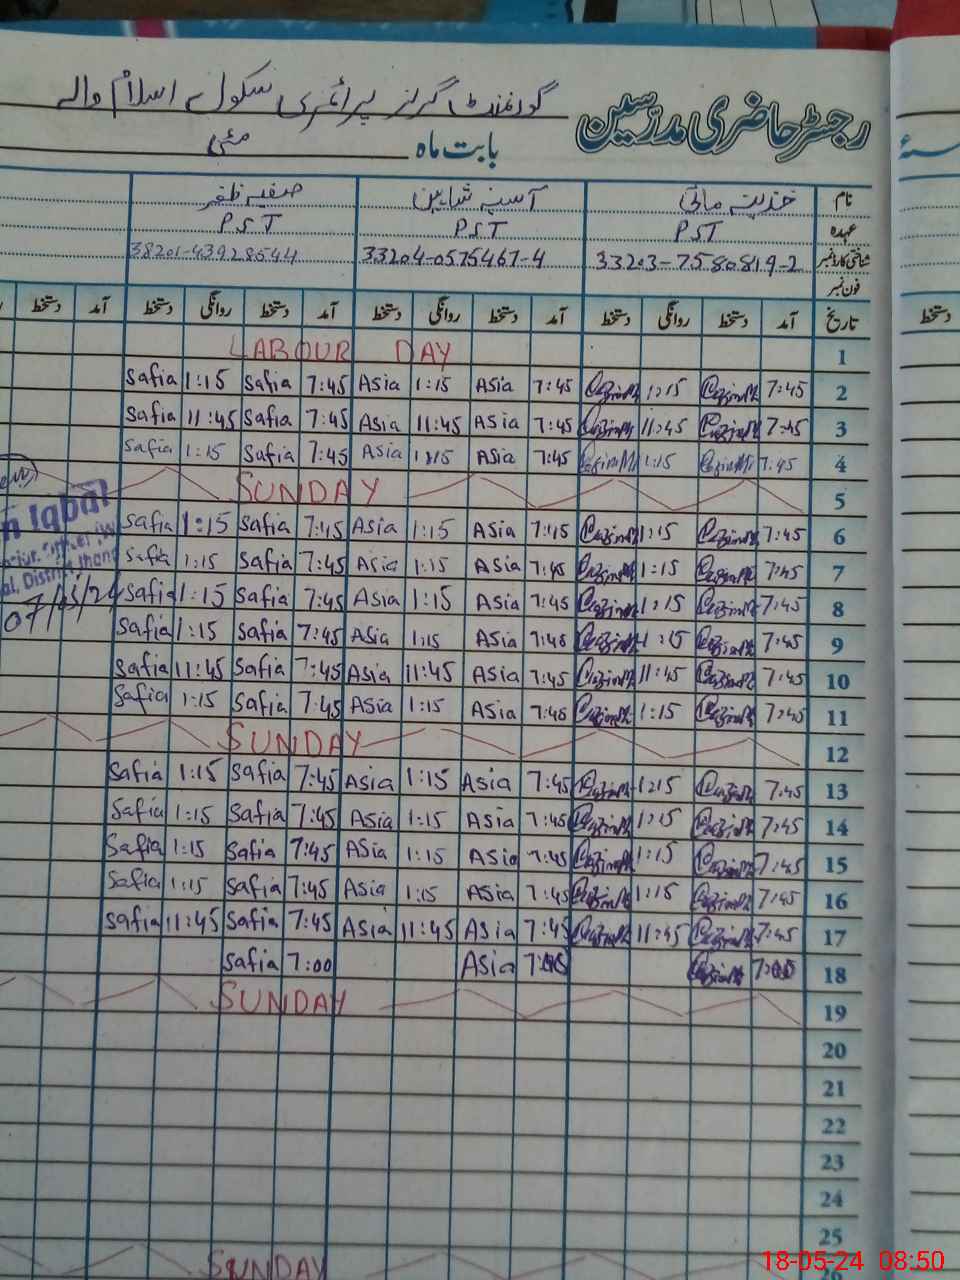 رجسٹر حاضری مدرسین گورنمنٹ گرلز پرائمری سکول اسلام والے
بابت ماہ مئی
نام خدیبہ مائی آسیہ شاہین صفیہ ظفر
عہدہ PST PST PST
شناختی کارڈ نمبر 33203-7580819-2 33204-0575467-4 38201-43928544
فون نمبر
تاریخ آمد دستخط روانگی دستخط آمد دستخط روانگی دستخط آمد دستخط روانگی دستخط آمد دستخط دستخط
LABOUR DAY 1
Safia 1:15 Safia 7:45 Asia 1:15 Asia 7:45 1:15 7:45 2
Safia 11:45 Safia 7:45 Asia 11:45 Asia 7:45 11:45 7:45 3
Safia 1:15 Safia 7:45 Asia 1:15 Asia 7:45 1:15 7:45 4
SUNDAY 5
Safia 1:15 Safia 7:45 Asia 1:15 Asia 7:45 1:15 7:45 6
Safia 1:15 Safia 7:45 Asia 1:15 Asia 7:45 1:15 7:45 7
Safia 1:15 Safia 7:45 Asia 1:15 Asia 7:45 1:15 7:45 8
Safia 1:15 Safia 7:45 Asia 1:15 Asia 7:45 1:15 7:45 9
Safia 11:45 Safia 7:45 Asia 11:45 Asia 7:45 11:45 7:45 10
Safia 1:15 Safia 7:45 Asia 1:15 Asia 7:45 1:15 7:45 11
Iqbal
District Jhang
07/05/24
SUNDAY 12
Safia 1:15 Safia 7:45 Asia 1:15 Asia 7:45 1:15 7:45 13
Safia 1:15 Safia 7:45 Asia 1:15 Asia 7:45 1:15 7:45 14
Safia 1:15 Safia 7:45 Asia 1:15 Asia 7:45 1:15 7:45 15
Safia 1:15 Safia 7:45 Asia 1:15 Asia 7:45 1:15 7:45 16
Safia 11:45 Safia 7:45 Asia 11:45 Asia 7:45 11:45 7:45 17
Safia 7:00 Asia 18
SUNDAY 19
20
21
22
23
24
25
SUNDAY 26
18-05-24 08:50